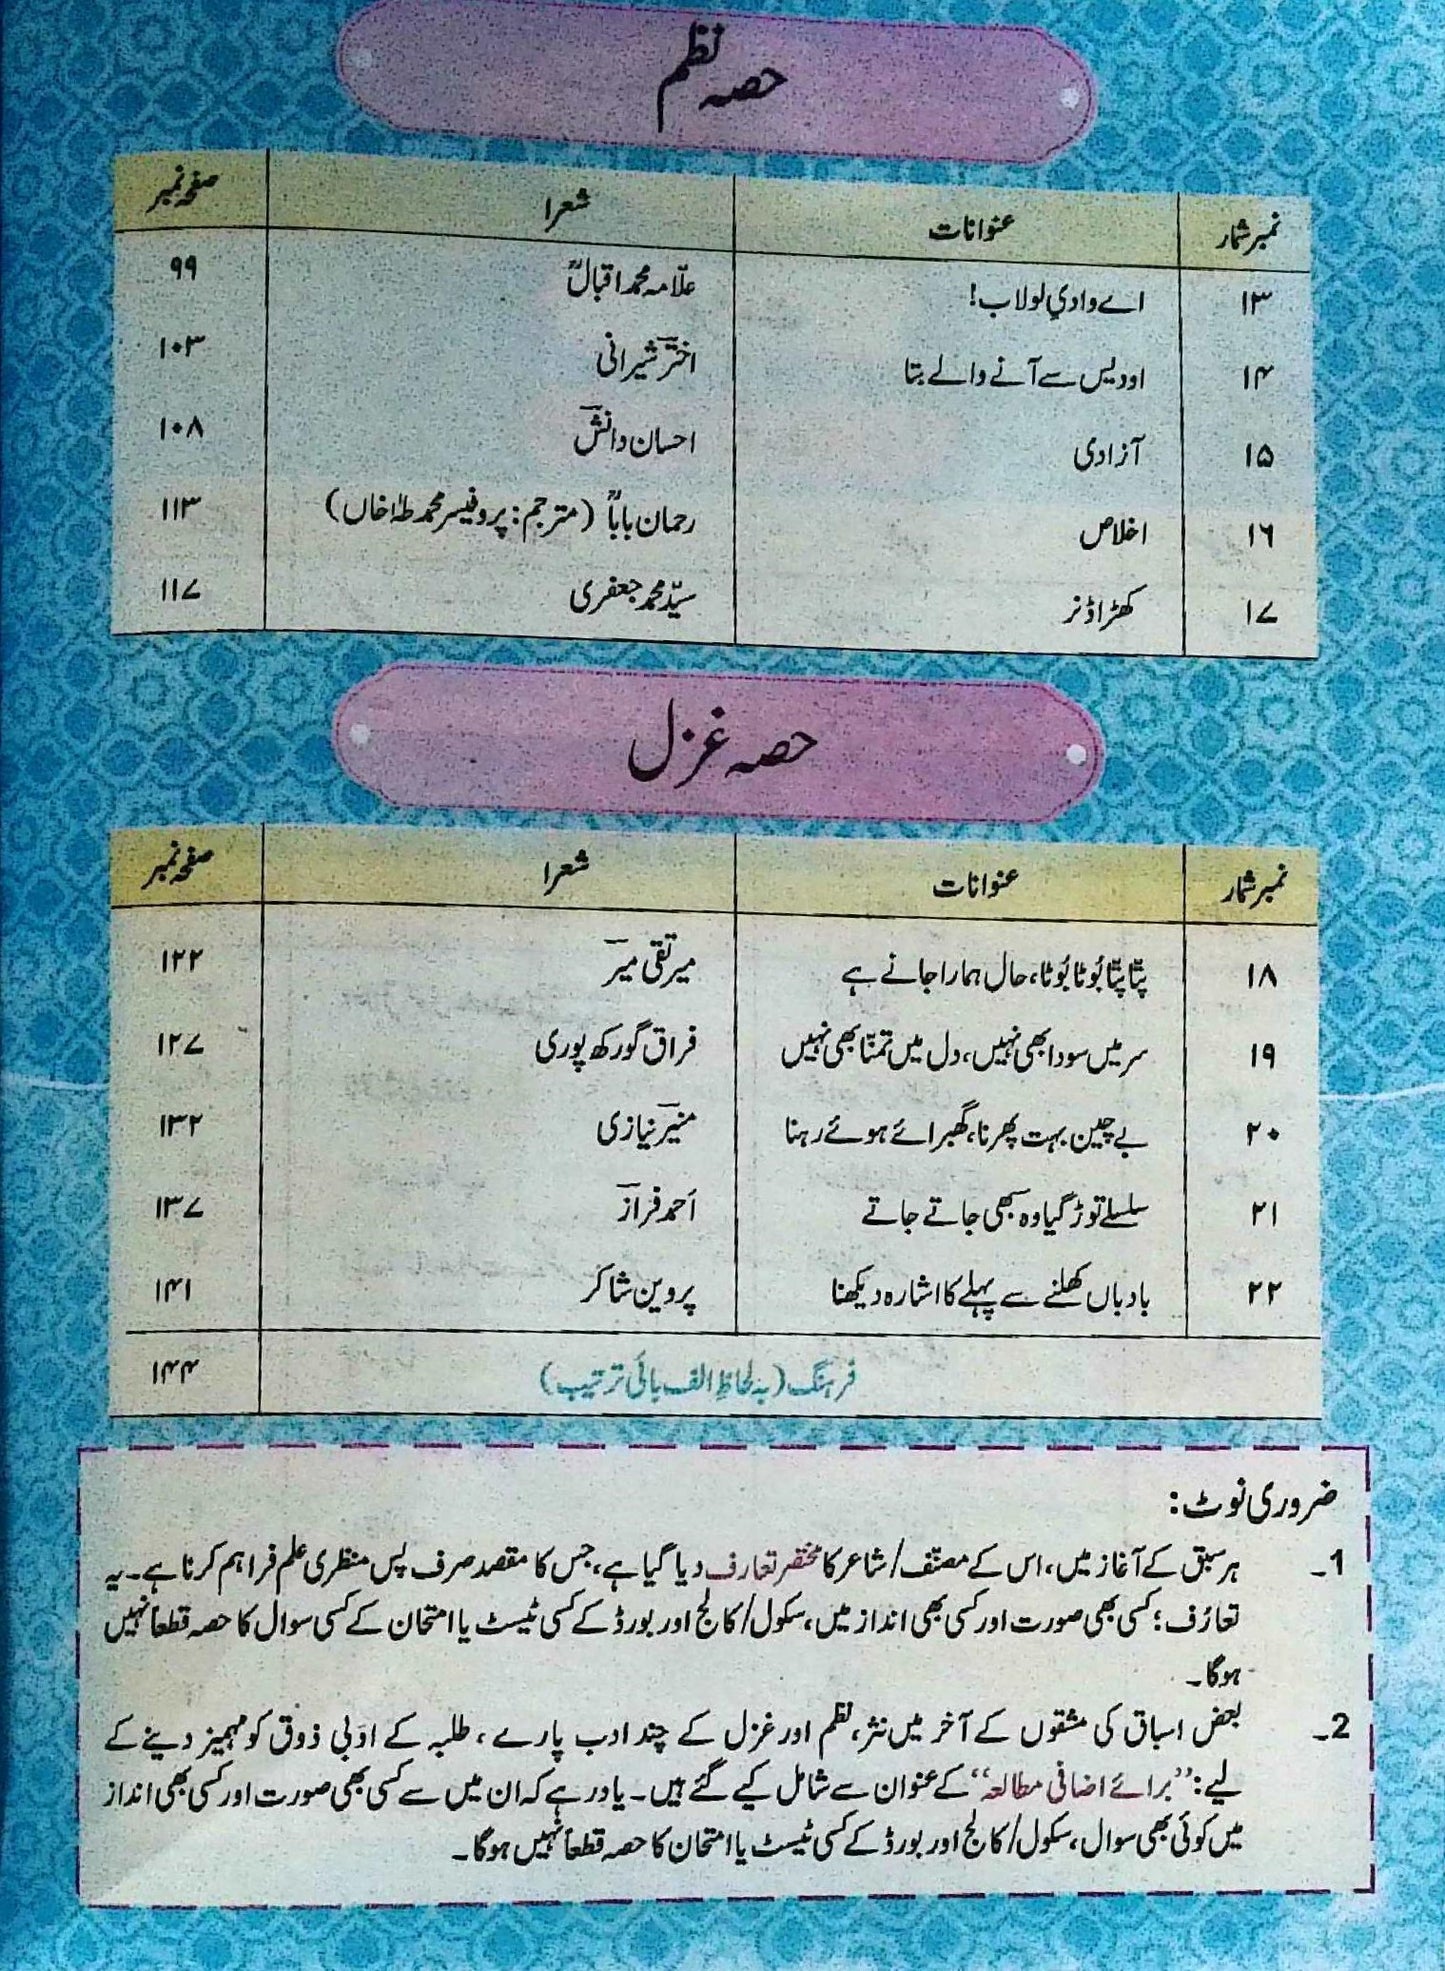 حصہ نظم
نمبر شمار عنوانات شعرا صفحہ نمبر
۱۳ اے وادیِ لولاب! علّامہ محمد اقبالؒ ۹۹
۱۴ او دیس سے آنے والے بتا اخترؔ شیرانی ۱۰۳
۱۵ آزادی احسان دانشؔ ۱۰۸
۱۶ اخلاص رحمان باباؒ (مترجم: پروفیسر محمد طہٰ خاں) ۱۱۳
۱۷ کھڑا ڈنر سیّد محمد جعفری ۱۱۷
حصہ غزل
نمبر شمار عنوانات شعرا صفحہ نمبر
۱۸ پتّا پتّا بُوٹا بُوٹا، حال ہمارا جانے ہے میر تقی میرؔ ۱۲۲
۱۹ سر میں سودا بھی نہیں، دل میں تمنّا بھی نہیں فراق گورکھ پوری ۱۲۷
۲۰ بے چین بہت پھرنا، گھبرائے ہوئے رہنا منیرؔ نیازی ۱۳۲
۲۱ سلسلے توڑ گیا وہ سبھی جاتے جاتے احمد فرازؔ ۱۳۷
۲۲ بادباں کھلنے سے پہلے کا اشارہ دیکھنا پروین شاکر ۱۴۱
فرہنگ (بہ لحاظِ الف بائی ترتیب) ۱۴۴
ضروری نوٹ:
1۔ ہر سبق کے آغاز میں، اس کے مصنّف/شاعر کا مختصر تعارف دیا گیا ہے، جس کا مقصد صرف پس منظری علم فراہم کرنا ہے۔ یہ
تعارف؛ کسی بھی صورت اور کسی بھی انداز میں، سکول/کالج اور بورڈ کے کسی ٹیسٹ یا امتحان کے کسی سوال کا حصہ قطعاً نہیں
ہوگا۔
2۔ بعض اسباق کی مشقوں کے آخر میں نثر، نظم اور غزل کے چند ادب پارے، طلبہ کے ادبی ذوق کو مہمیز دینے کے
لیے: ”برائے اضافی مطالعہ“ کے عنوان سے شامل کیے گئے ہیں۔ یاد رہے کہ ان میں سے کسی بھی صورت اور کسی بھی انداز
میں کوئی بھی سوال، سکول/کالج اور بورڈ کے کسی ٹیسٹ یا امتحان کا حصہ قطعاً نہیں ہوگا۔